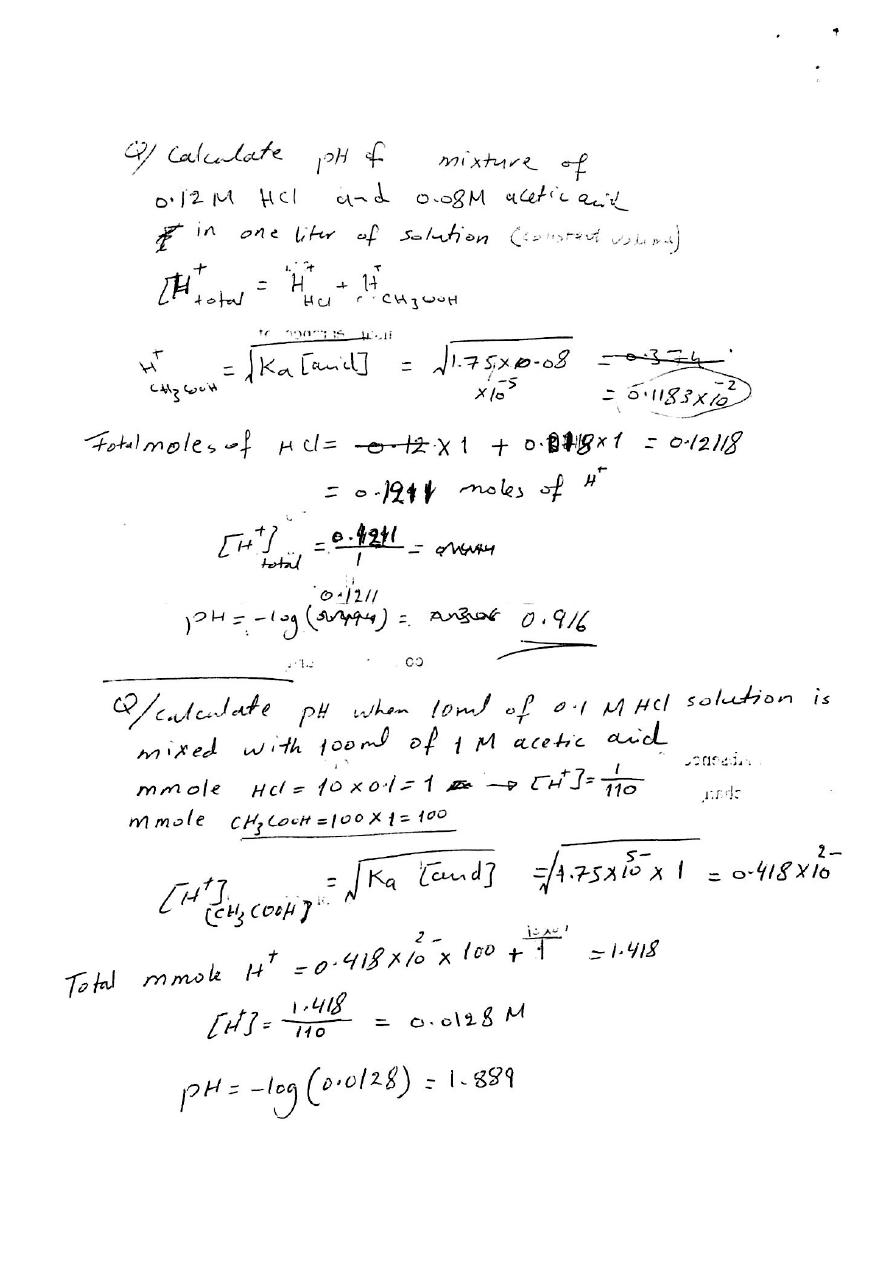 Q/ Calculate pH of mixture of
0.12 M HCl and 0.08M acetic acid
in one liter of solution (constant volume)
[H⁺ total = H⁺ HCl + H⁺ CH3COOH
H⁺ CH3COOH = √Ka [acid] = √1.75 × 0.08 × 10⁻⁵ = 0.374
= 0.1183 × 10⁻²
Total moles of HCl = 0.12 × 1 + 0.00118 × 1 = 0.12118
= 0.1211 moles of H⁺
[H⁺] total = 0.1211 / 1 =
0.1211
pH = -log ( ) = 0.916
Q/ calculate pH when 10ml of 0.1 M HCl solution is
mixed with 100ml of 1 M acetic acid
mmole HCl = 10 × 0.1 = 1 → [H⁺] = 1 / 110
mmole CH3COOH = 100 × 1 = 100
[H⁺] [CH3COOH] = √Ka [acid] = √1.75 × 10 5- × 1 = 0.418 × 10 2-
Total mmole H⁺ = 0.418 × 10 2- × 100 + 1 = 1.418
[H⁺] = 1.418 / 110 = 0.0128 M
pH = -log (0.0128) = 1.889